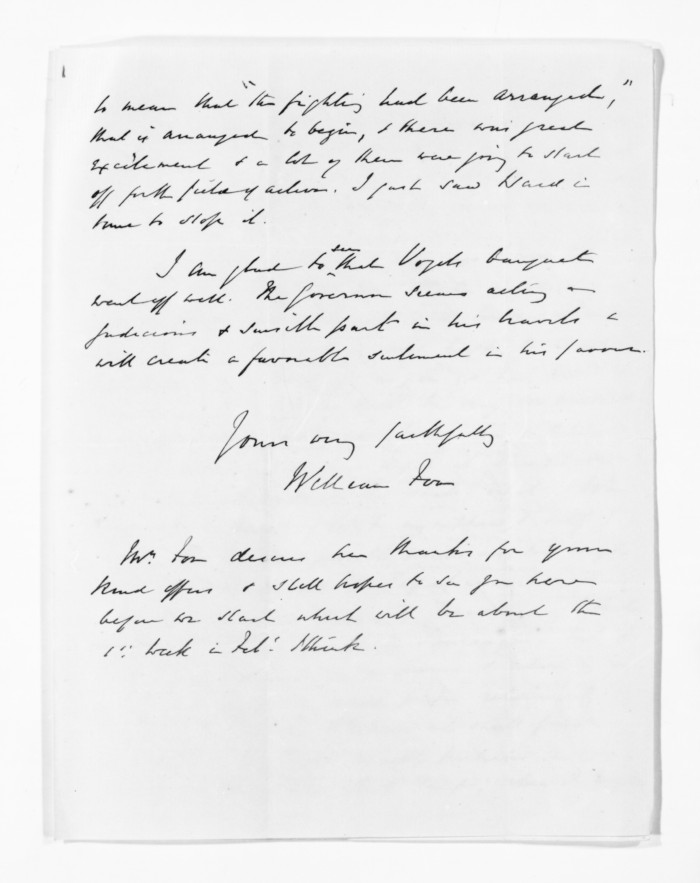 to mean that "the fighting had been arranged,"
that is arranged to begin, & there was great
excitement & a lot of them were going to start
off for the field of action. I just saw Ward in
time to stop it.
I am glad to see that Vogels banquet
went off well. The Governor seems acting a
judicious & sensible part in his travels &
will create a favorable sentiment in his favour.
Yours very faithfully
William Fox
Mrs. Fox desires her thanks for your
kind offers & still hopes to see you here
before we start which will be about the
1st. week in Feby. I think.